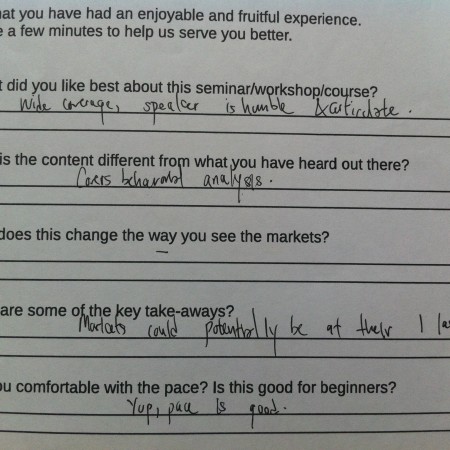 at you have had an enjoyable and fruitful experience.
e a few minutes to help us serve you better.
t did you like best about this seminar/workshop/course?
Wide coverage, speaker is humble &
is the content different from what you have heard out there?
Covers behavioral analysis.
does this change the way you see the markets?
–
are some of the key take-aways?
Markets could potentially be at their
ou comfortable with the pace? Is this good for beginners?
Yup, pace is good.